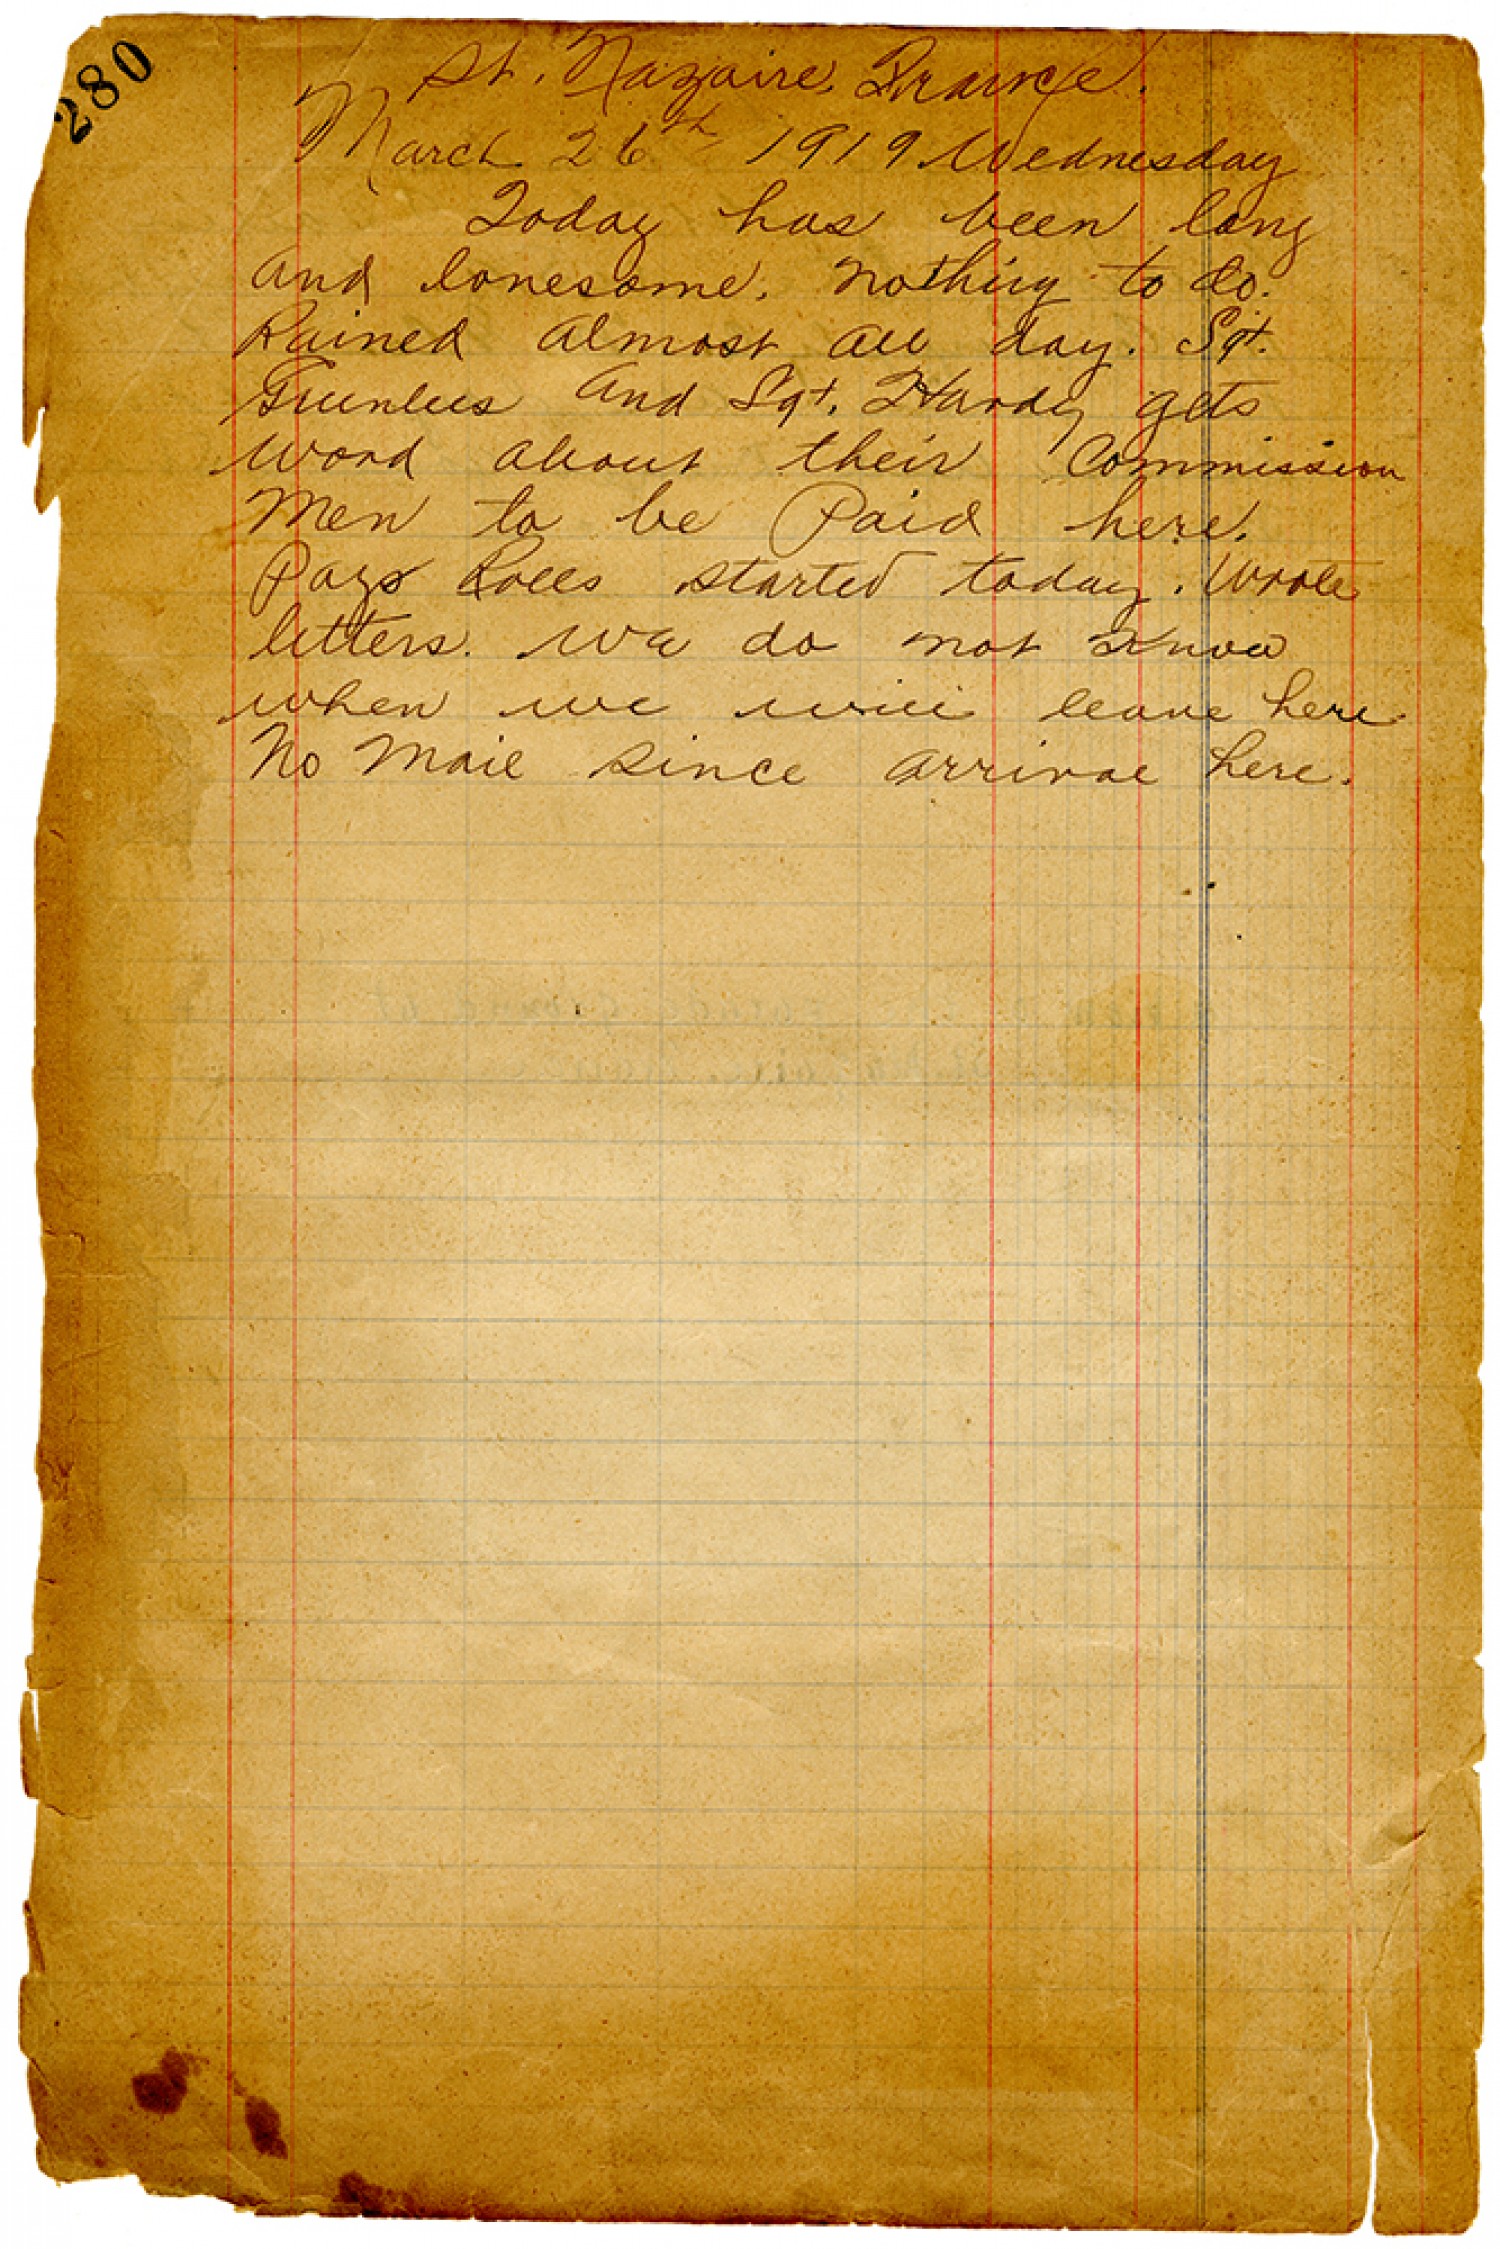 280
St. Nazaire, France.
March 26th 1919 Wednesday
Today has been long
and lonesome. nothing to do.
Rained almost all day. Sgt.
Greenlees and Sgt. Hardy gets
word about their Commission
Men to be Paid here.
Pay Rolls started today. Wrote
letters. We do not know
when we will leave here
No Mail since arrival here.